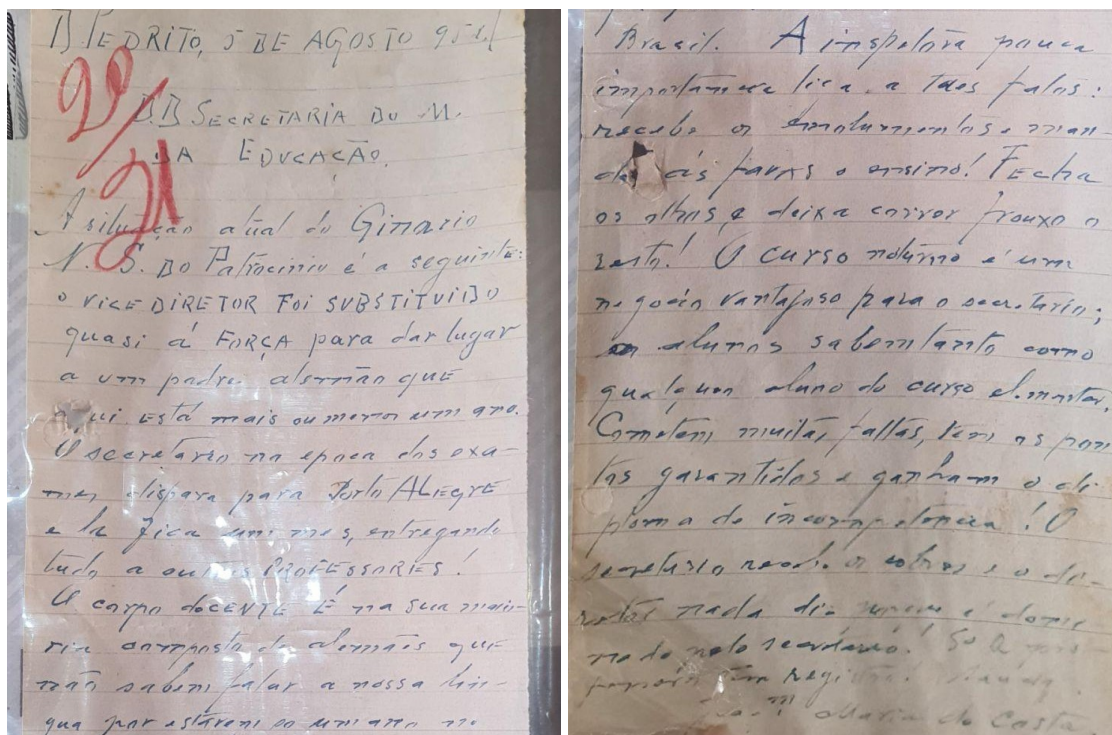 D. PEDRITO, 5 DE AGOSTO 951
20/
21
DD SECRETARIA DO M.
DA EDUCAÇÃO.
A situação atual do Ginasio
N. S. DO Patrocinio é a seguinte:
o VICE DIRETOR FOI SUBSTITUIDO
quasi á FORÇA para dar lugar
a um padre alemão que
aqui está mais ou menos um ano.
O secretário na epoca dos exa-
mes dispara para Porto ALEGRE
e la fica um mes, entregando
tudo a outros PROFESSORES!
O corpo docENTE É na sua maio-
ria composto de alemães que
não sabem falar a nossa lin-
gua por estarem so um ano no
Brasil. A inspetora pouca
importancia liga a tais fatos:
recebe os emolumentos e man-
da ás favas o ensino! Fecha
os olhos e deixa correr frouxo o
resto! O curso noturno é um
negócio vantajoso para o secretario;
os alunos sabem tanto como
qualquer aluno do curso elementar.
Cometem muitas faltas, tem os pon-
tos garantidos e ganham o di-
ploma de incompetencia! O
secretário recebe os cobres e o di-
retor nada diz porque é domi-
nado pelo secretário! So
registro!
Maria da Costa